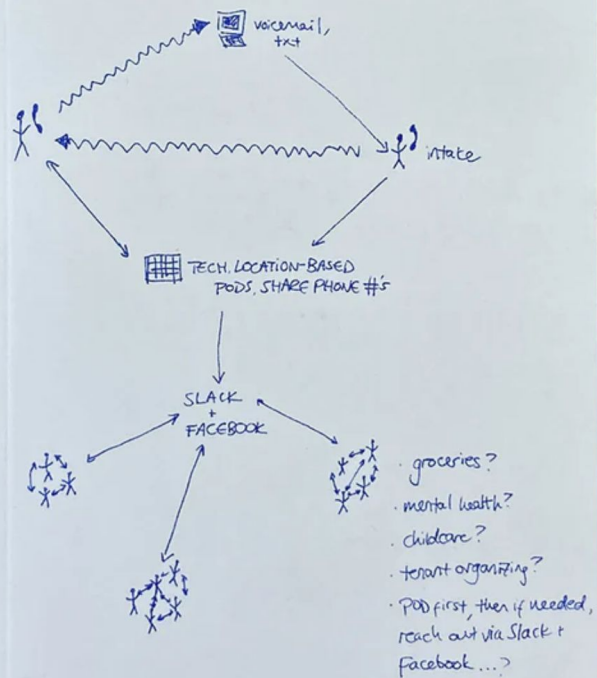 voicemail,
txt
intake
TECH, LOCATION-BASED
PODS, SHARE PHONE #'s
SLACK
+
FACEBOOK
· groceries?
· mental health?
· childcare?
· tenant organizing?
· POD first, then if needed,
reach out via Slack +
Facebook...?